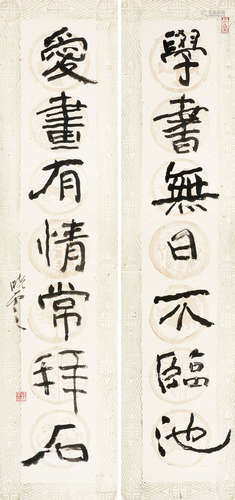 學書無日不臨池
愛畫有情常拜石